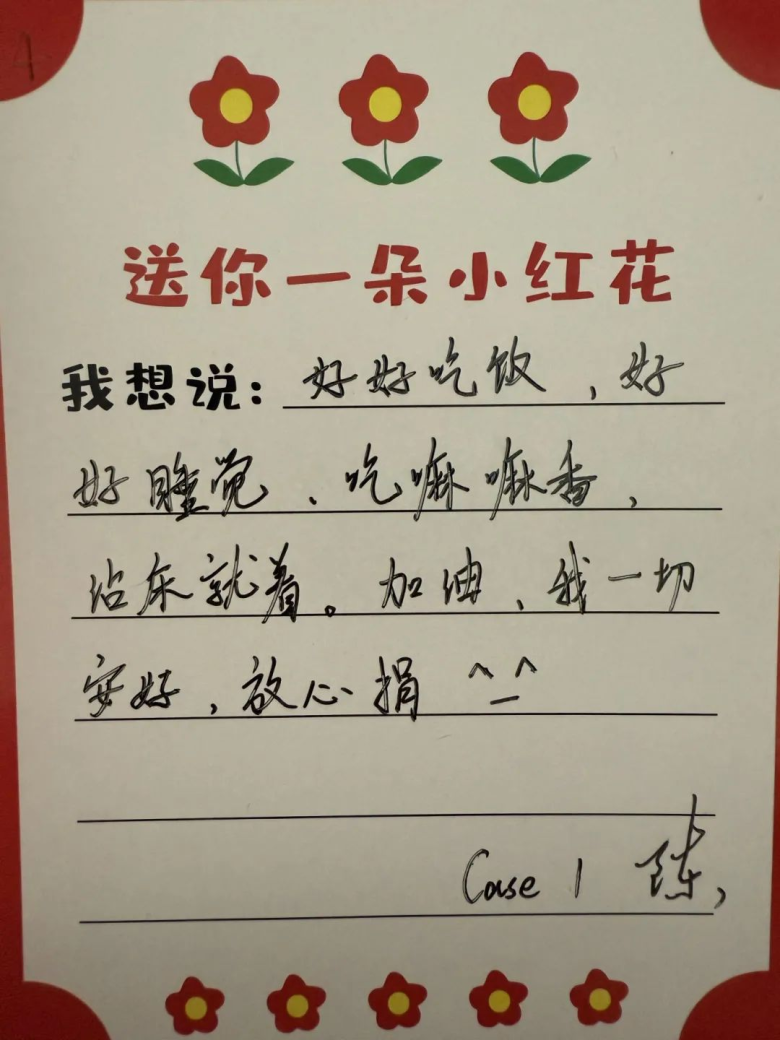 送你一朵小红花
我想说：好好吃饭，好
好睡觉、吃嘛嘛香，
沾床就着。加油、我一切
安好，放心捐 ^_^
Case 1 陈